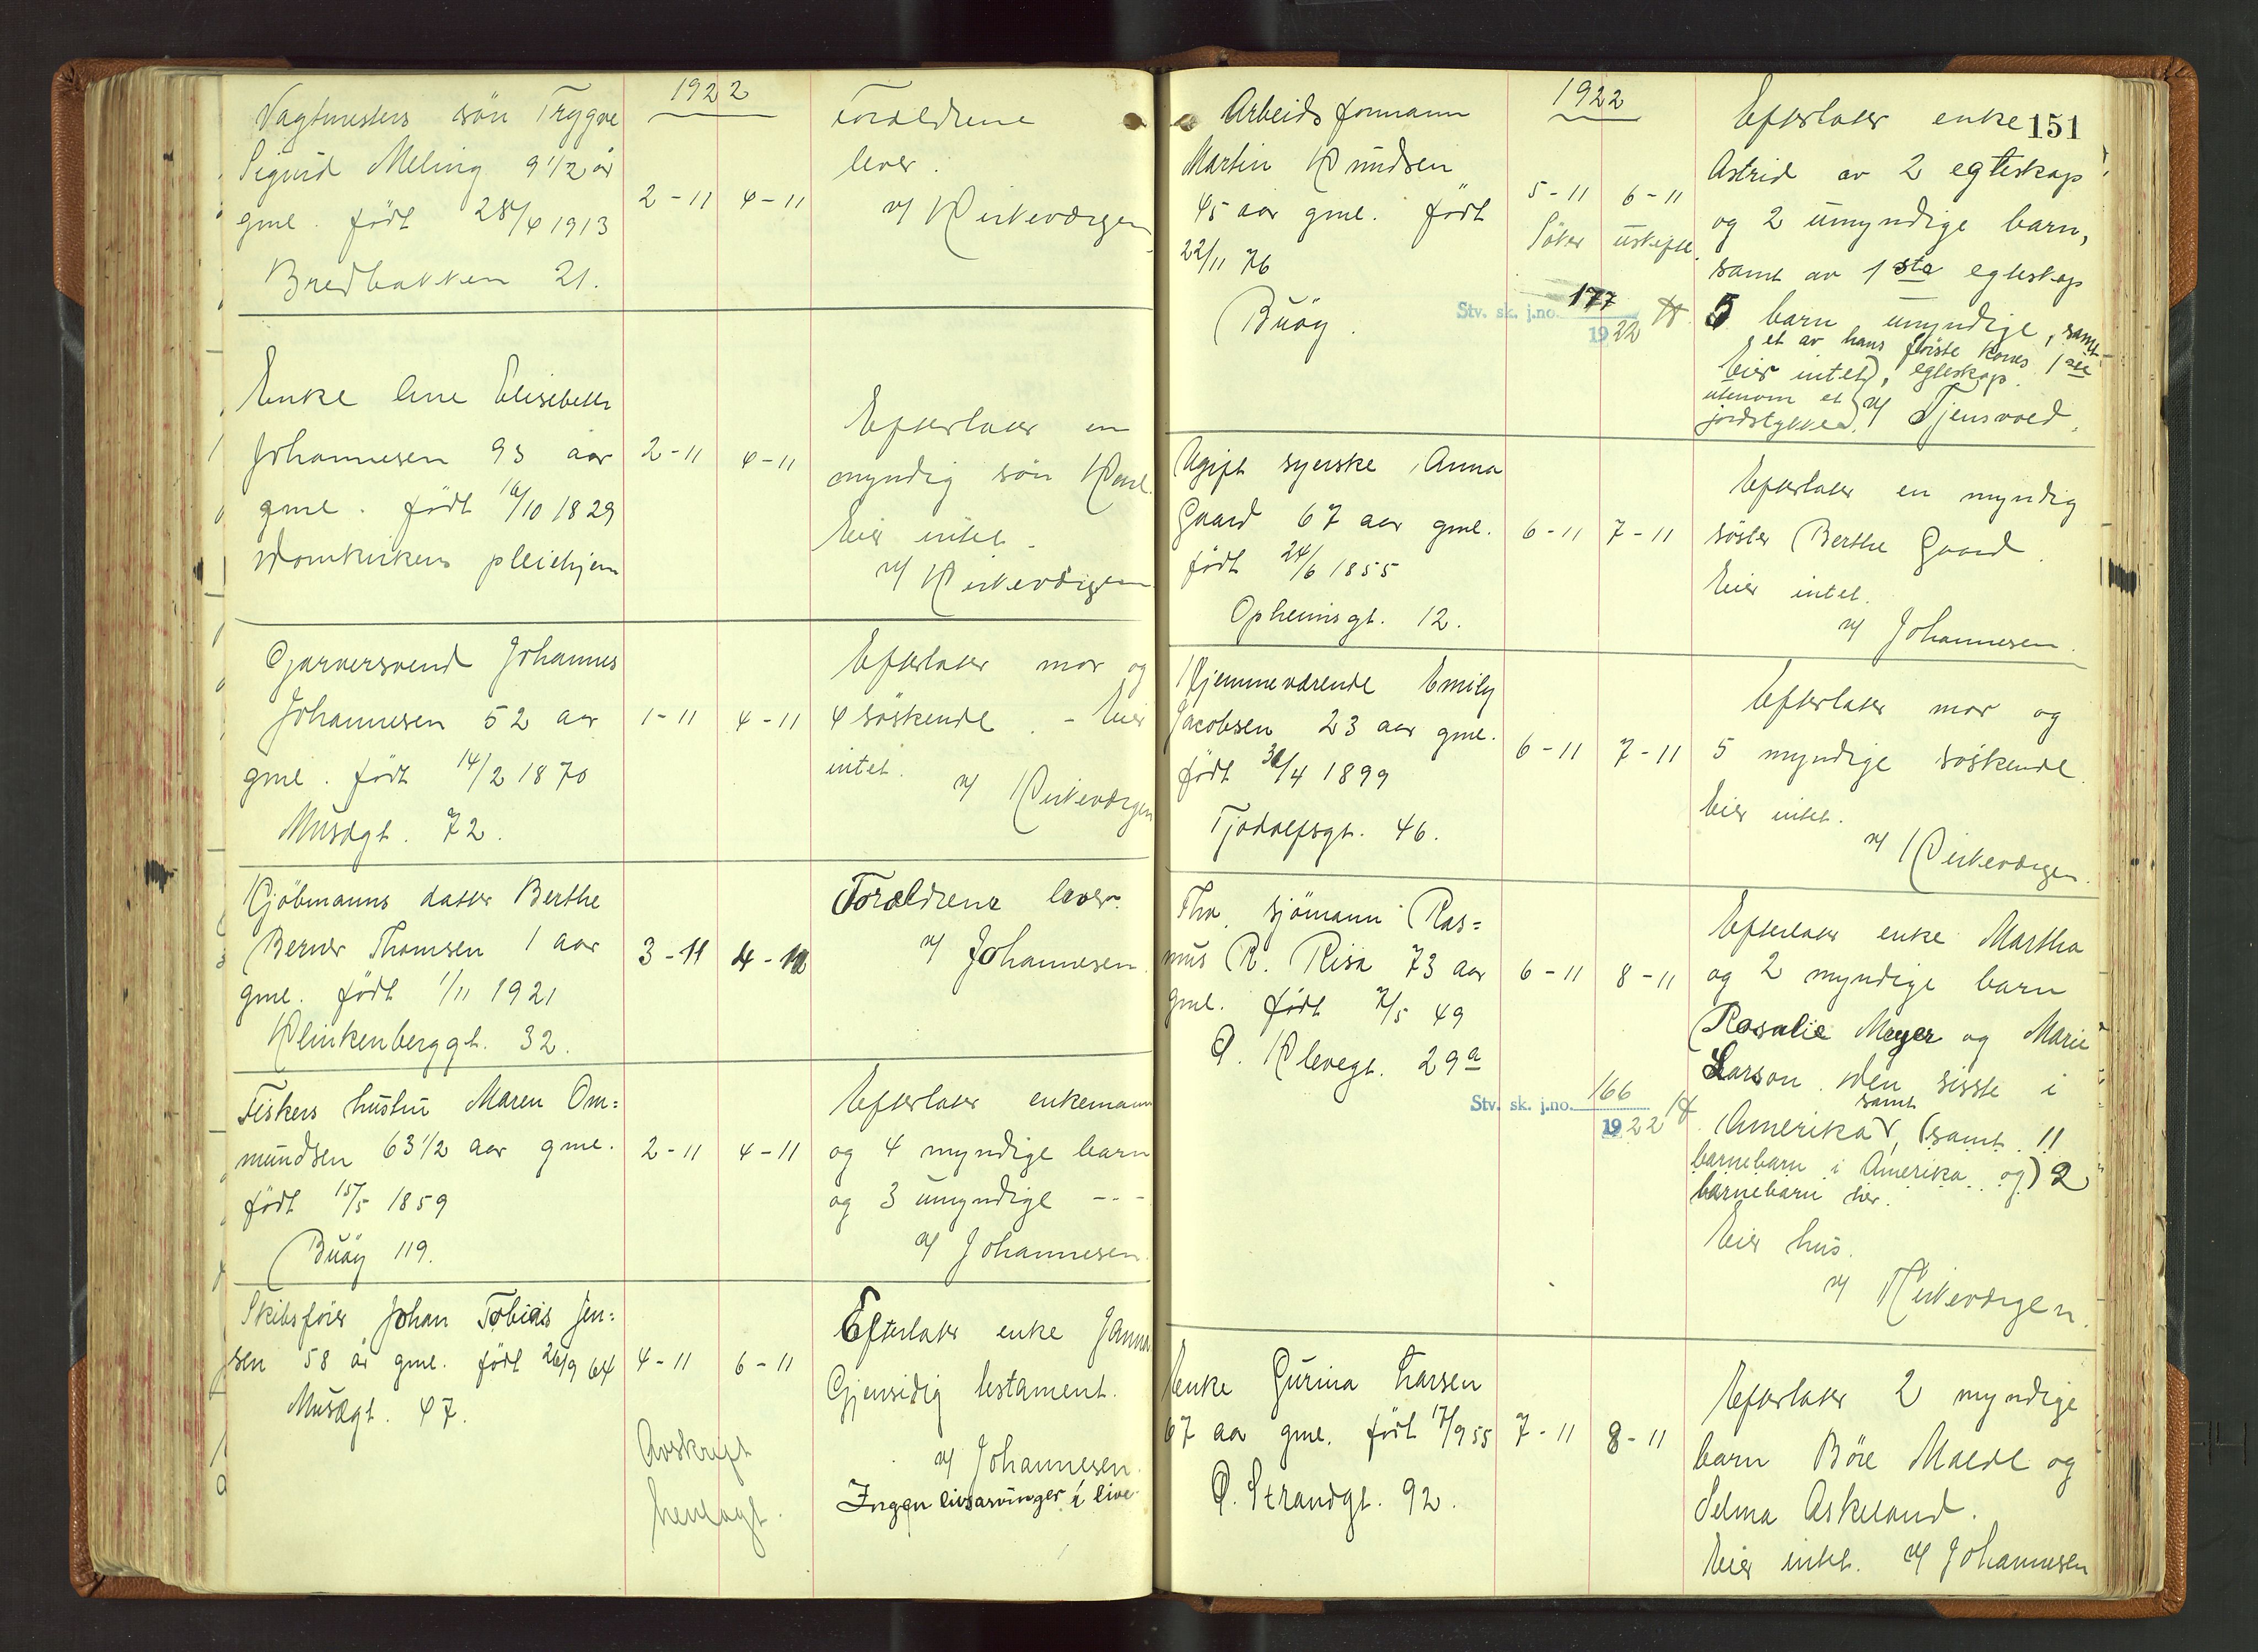 1922
Vagtmesters søn Trygve
Sigurd Meling 9 1/2 år
gml. født 28/4 1913
Bredbakken 21.
2-11 4-11
Foraldrene
lever.
v/ Kirkeværgen
Enke Ane Elisebeth
Johannesen 93 aar
gml. født 16/10 1829
Domkirkens pleiehjem
2-11 4-11
Efterlater en
myndig søn Karl.
Eier intet.
v/ Kirkeværgen
Garversvend Johannes
Johannesen 52 aar
gml. født 14/2 1870
Musægt. 72.
1-11 4-11
Efterlater mor og
4 søskende. - Eier
intet.
v/ Kirkeværgen
Kjøbmanns datter Berthe
Berner Thomsen 1 aar
gml. født 1/11 1921
Klinkenberggt. 32.
3-11 4-11
Foraldrene lever.
v/ Johannesen.
Fiskers hustru Maren Om=
mundsen 63 1/2 aar gml.
født 15/5 1859
Buøy 119.
2-11 4-11
Efterlater enkemann
og 4 myndige barn
og 3 umyndige - - -
v/ Johannesen.
Skibsfører Johan Tobias Jen=
sen 58 år gml. født 26/9 64
Musægt. 47.
4-11 6-11
Avskrift
henlagt.
Efterlater enke Janna
Gjensidig testament.
v/ Johannesen.
Ingen livsarvinger i live.
151
1922
Arbeidsformann
Martin Knudsen
45 aar gml. født
22/11 76
Buøy.
5-11 6-11
Søker uskifte.
Stv. sk. j.no. 177
1922
Efterlater enke
Astrid av 2 egteskap
og 2 umyndige barn,
samt av 1ste egteskap
5 barn umyndige, samt
et av hans første kones 1ste
Eier intet, egteskap.
utenom et
jordstykke. v/ Tjensvold.
Ugift syerske Anna
Gaard 67 aar gml.
født 24/6 1855
Opheimsgt. 12.
6-11 7-11
Efterlater en myndig
søster Berthe Gaard.
Eier intet.
v/ Johannesen.
Hjemmeværende Emily
Jacobsen 23 aar gml.
født 30/4 1899
Tjodolfsgt. 46.
6-11 7-11
Efterlater mor og
5 myndige søskende.
Eier intet.
v/ Kirkeværgen.
Fhv. sjømann Ras=
mus R. Risa 73 aar
gml. født 7/5 49
Ø. Klevegt. 29a
6-11 8-11
Stv. sk. j.no. 166
1922
Efterlater enke Martha
og 2 myndige barn
Rosalie Meyer og Marie
Larson. den sisste i
samt
Amerika, (samt 11
barnebarn i Amerika og) 2
barnebarn her.
Eier hus.
v/ Kirkeværgen.
Enke Gurina Larsen
67 aar gml. født 17/9 55
Ø. Strandgt. 92.
7-11 8-11
Efterlater 2 myndige
barn Børe Malde og
Selma Askeland.
Eier intet. v/ Johannesen